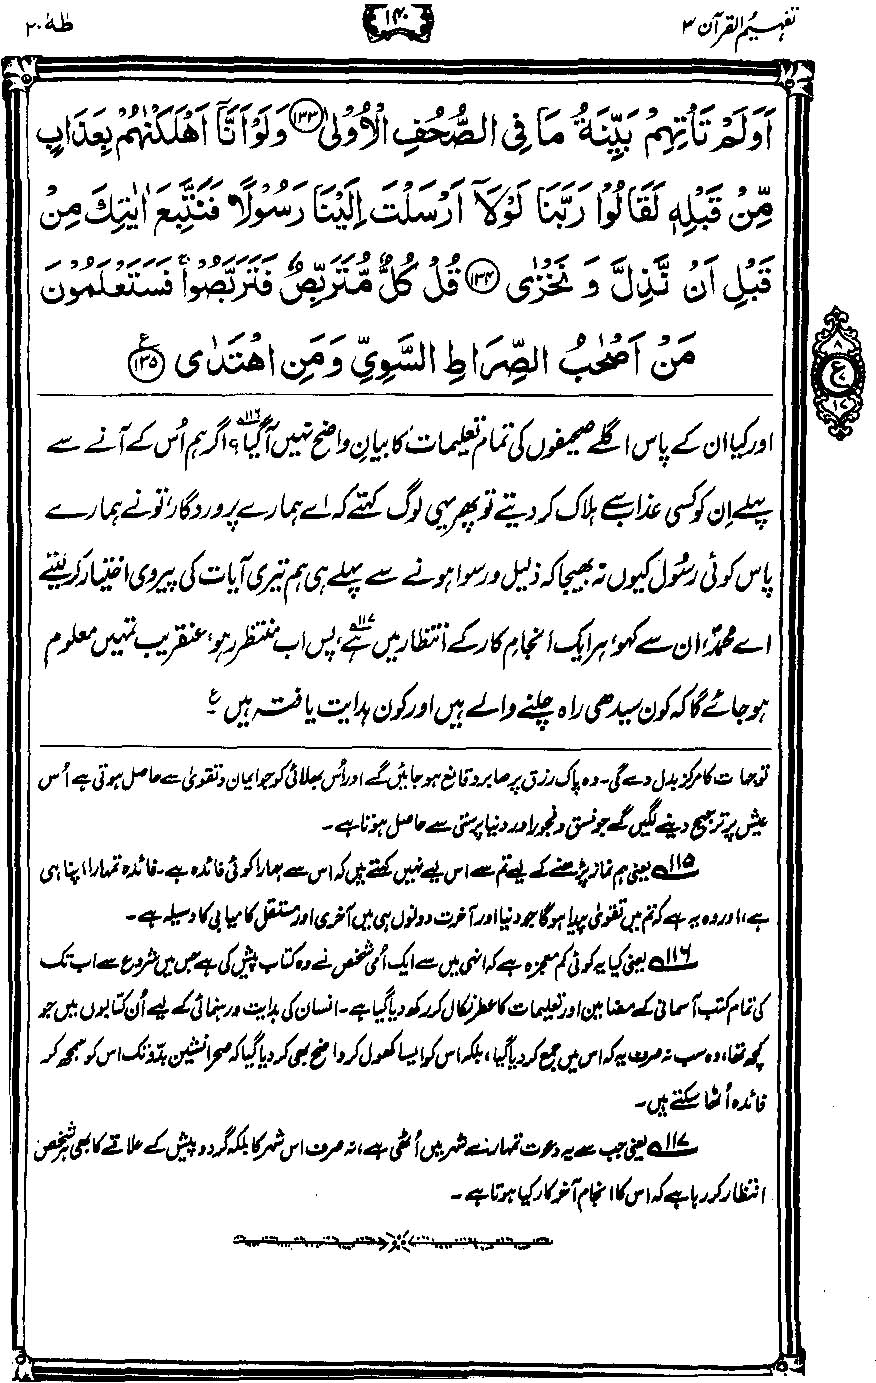 تفہیم القرآن ۳
۱۴۰
طٰہٰ ۲۰
اَوَلَمْ تَاْتِهِمْ بَيِّنَةُ مَا فِي الصُّحُفِ الْاُوْلٰى ﴿۱۳۳﴾ وَلَوْ اَنَّآ اَهْلَكْنٰهُمْ بِعَذَابٍ
مِّنْ قَبْلِهٖ لَقَالُوْا رَبَّنَا لَوْلَآ اَرْسَلْتَ اِلَيْنَا رَسُوْلًا فَنَتَّبِعَ اٰيٰتِكَ مِنْ
قَبْلِ اَنْ نَّذِلَّ وَ نَخْزٰى ﴿۱۳۴﴾ قُلْ كُلٌّ مُّتَرَبِّصٌ فَتَرَبَّصُوْا ۚ فَسَتَعْلَمُوْنَ
مَنْ اَصْحٰبُ الصِّرَاطِ السَّوِيِّ وَمَنِ اهْتَدٰى ﴿۱۳۵﴾ ع
۸
ع
۱۷
اور کیا ان کے پاس اگلے صحیفوں کی تمام تعلیمات کا بیانِ واضح نہیں آگیا؟۱۱۶ اگر ہم اُس کے آنے سے
پہلے اِن کو کسی عذاب سے ہلاک کر دیتے تو پھر یہی لوگ کہتے کہ اے ہمارے پروردگار، تُو نے ہمارے
پاس کوئی رسُول کیوں نہ بھیجا کہ ذلیل و رسوا ہونے سے پہلے ہی ہم تیری آیات کی پیروی اختیار کر لیتے
اے محمدؐ، ان سے کہو، ہر ایک انجامِ کار کے انتظار میں ہے،۱۱۷ پس اب منتظر رہو، عنقریب تمہیں معلوم
ہو جائے گا کہ کون سیدھی راہ چلنے والے ہیں اور کون ہدایت یافتہ ہیں ع
توجہات کا مرکز بدل دے گی۔ وہ پاک رزق پر صابر و قانع ہو جائیں گے اور اُس بھلائی کو جو ایمان و تقویٰ سے حاصل ہوتی ہے اُس
عیش پر ترجیح دینے لگیں گے جو فسق و فجور اور دنیا پرستی سے حاصل ہوتا ہے۔
۱۱۵ یعنی ہم نماز پڑھنے کے لیے تم سے اس لیے نہیں کہتے ہیں کہ اس سے ہمارا کوئی فائدہ ہے۔ فائدہ تمہارا اپنا ہی
ہے، اور وہ یہ ہے کہ تم میں تقویٰ پیدا ہوگا جو دنیا اور آخرت دونوں ہی میں آخری اور مستقل کامیابی کا وسیلہ ہے۔
۱۱۶ یعنی کیا یہ کوئی کم معجزہ ہے کہ انہی میں سے ایک اُمی شخص نے وہ کتاب پیش کی ہے جس میں شروع سے اب تک
کی تمام کتب آسمانی کے مضامین اور تعلیمات کا عطر نکال کر رکھ دیا گیا ہے۔ انسان کی ہدایت و رہنمائی کے لیے اُن کتابوں میں جو
کچھ تھا، وہ سب نہ صرف یہ کہ اس میں جمع کر دیا گیا، بلکہ اس کو ایسا کھول کر واضح بھی کر دیا گیا کہ صحرا نشین بدّو تک اس کو سمجھ کر
فائدہ اُٹھا سکتے ہیں۔
۱۱۷ یعنی جب سے یہ دعوت تمہارے شہر میں اُٹھی ہے، نہ صرف اس شہر کا بلکہ گرد و پیش کے علاقے کا بھی ہر شخص
انتظار کر رہا ہے کہ اس کا انجام آخر کار کیا ہوتا ہے۔